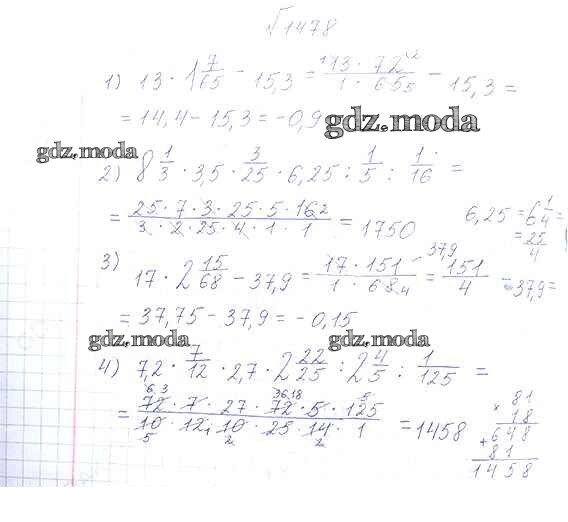 №1478
1) 13 · 1 7/65 − 15,3 = 13 · 72 / 1 · 65 − 15,3 =
= 14,4 − 15,3 = −0,9
gdz.moda
gdz.moda
2) 8 1/3 · 3,5 · 3/25 · 6,25 : 1/5 : 1/16 =
= 25 · 7 · 3 · 25 · 5 · 16 / 3 · 2 · 25 · 4 · 1 · 1 = 1750
6,25 = 6 1/4 =
= 25/4
3) 17 · 2 15/68 − 37,9 = 17 · 151 / 1 · 68 − 37,9 = 151/4 − 37,9 =
= 37,75 − 37,9 = −0,15
gdz.moda
gdz.moda
4) 7,2 · 7/12 · 2,7 · 2 22/25 : 2 4/5 : 1/125 =
= 72 · 7 · 27 · 72 · 5 · 125 / 10 · 12 · 10 · 25 · 14 · 1 = 1458
81
× 18
648
+ 81
1458